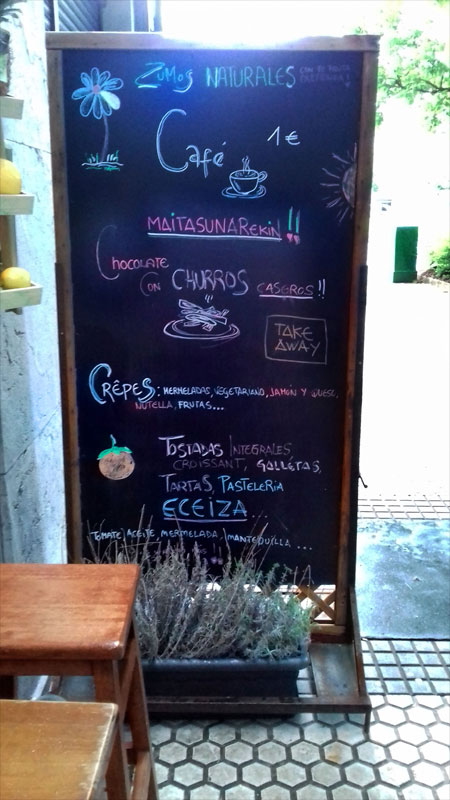 ZUMOS NATURALES
Café 1€
MAITASUNAREKIN!!
CHOCOLATE
CON CHURROS CASEROS!!
TAKE
AWAY
CRÊPES: MERMELADAS, VEGETARIANO, JAMÓN Y QUESO,
NUTELLA, FRUTAS...
TOSTADAS INTEGRALES
CROISSANT, GALLETAS,
TARTAS, PASTELERIA
ECEIZA...
TOMATE, ACEITE, MERMELADA, MANTEQUILLA...